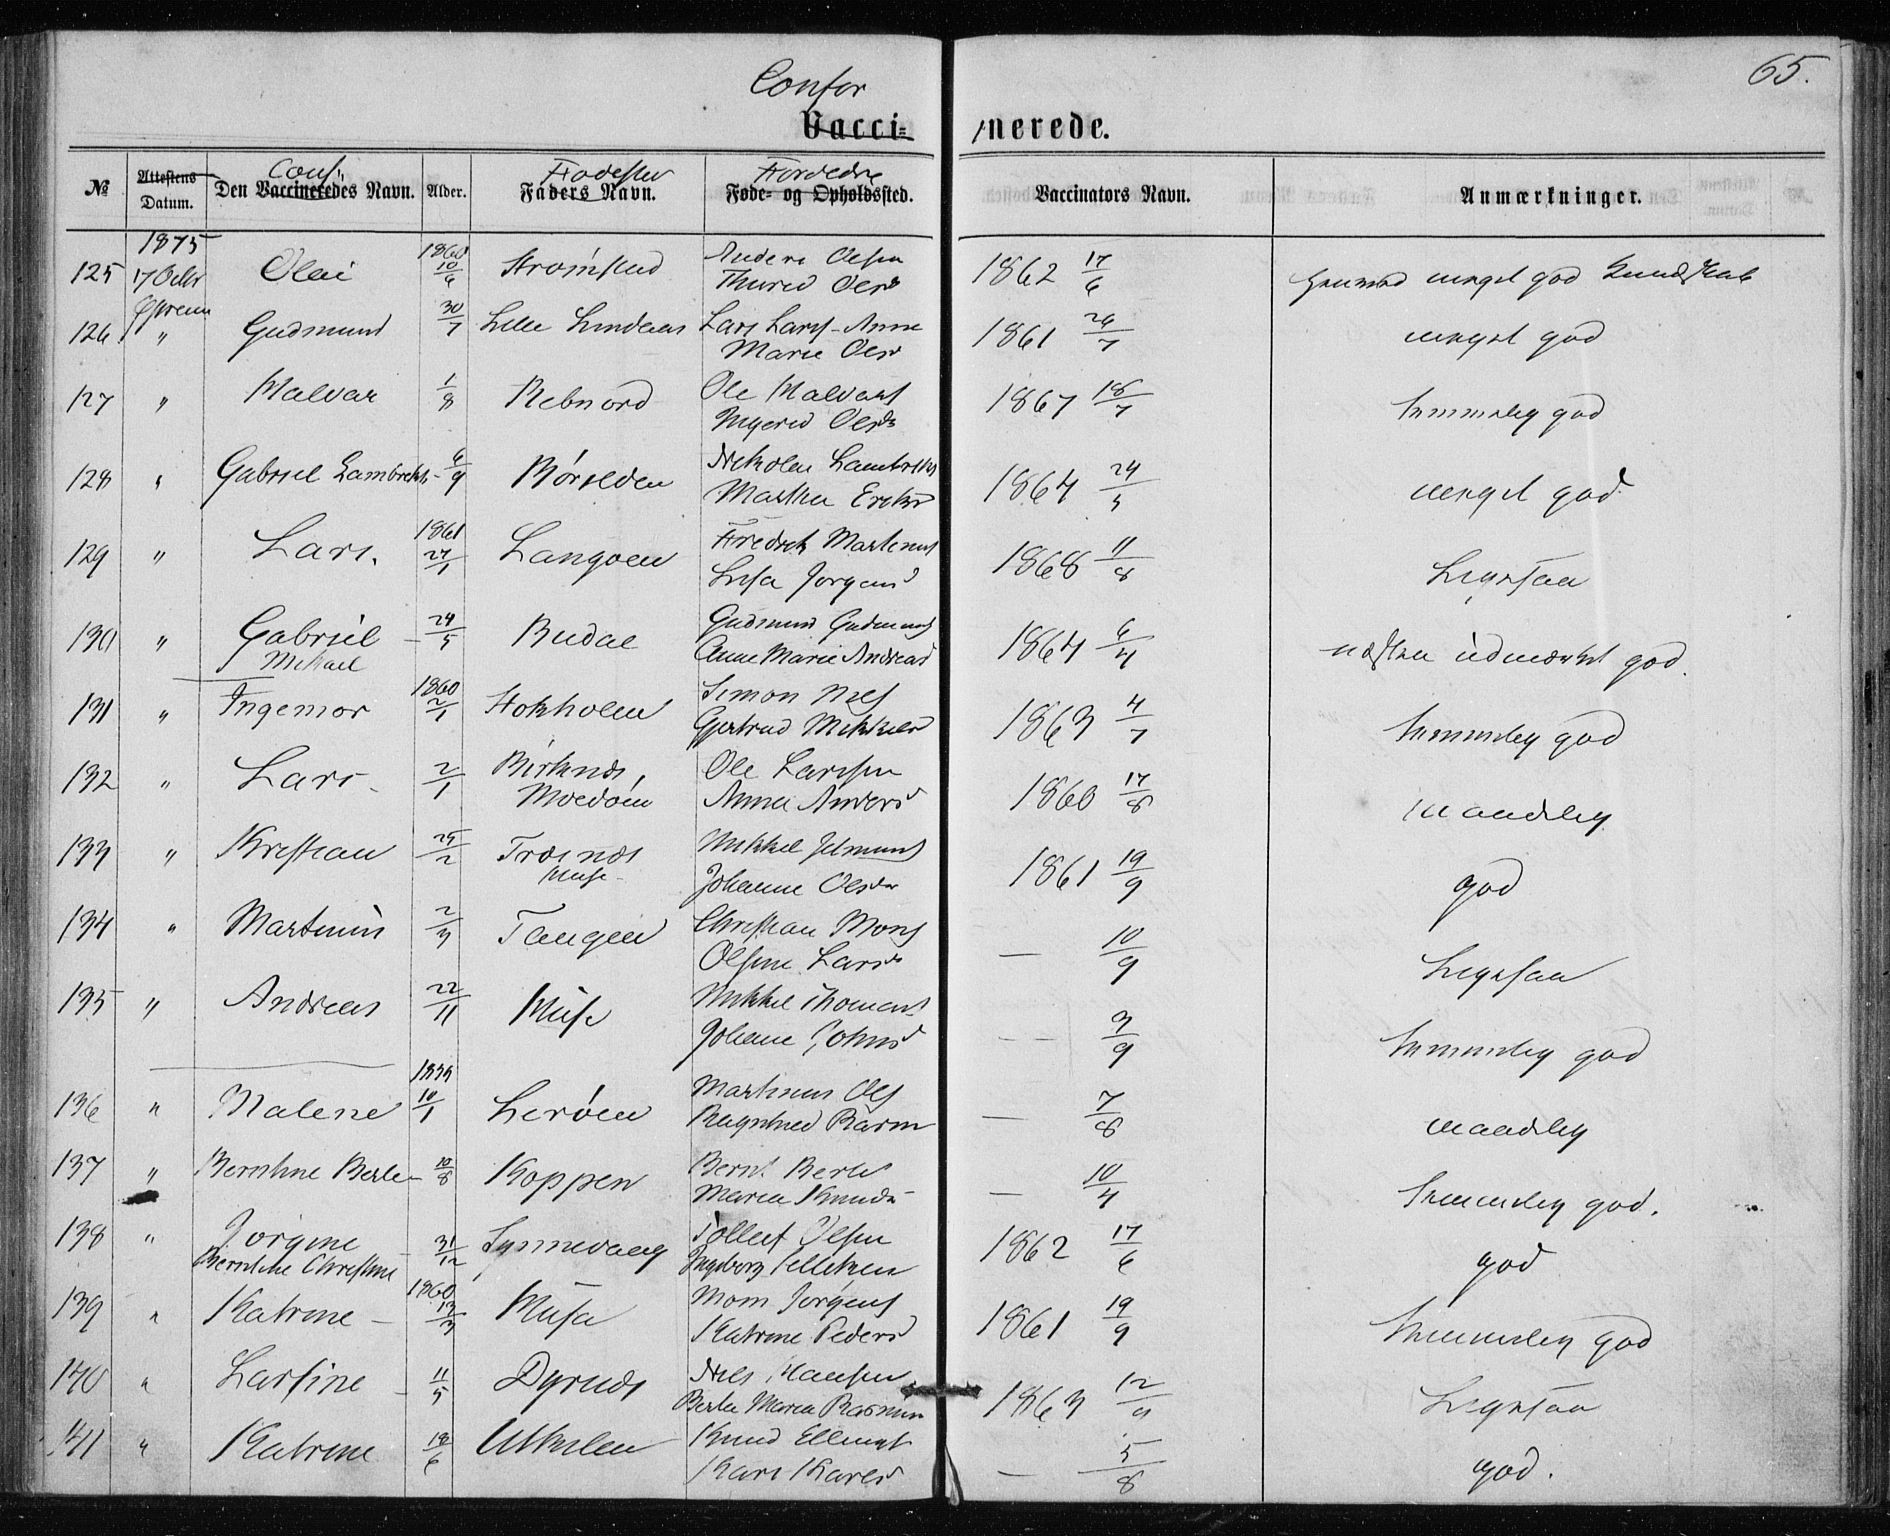 65.
Confor
Vacci= nerede.
Conf. Fødested Forældre
№ Attestens Datum. Den Vaccineredes Navn. Alder. Faders Navn. Føde- og Opholdssted. Vaccinators Navn. Anmærkninger.
1875 1860
125 17 Octbr Olai 10/6 Stromsund Anders Olsen 1862 17/6 meget god Kundskab
Thurid Olsd
126 " Gudmund 30/7 Lille Lindeaas Lars Lars. Anne 1861 26/7 meget god
Marie Olsd
127 " Halvar 1/8 Rebnord Ole Halvars 1867 18/7 temmelig god
Ingerid Olsd
128 " Gabriel Lambrekts - 6/9 Børselden Nekolai Lambrekts 1864 24/5 meget god
Martha Ericksd
1861
129 " Lars. 27/1 Langoen Fredrek Martenus 1868 11/8 Ligesaa
Lusa Jorgensd
130 " Gabriel - 24/5 Budal Gudmund Gudmunds 1864 6/4 næsten udmærket god.
Mikael Anne Marie Andreasd
1860
131 " Ingemor 2/1 Stokholen Simon Niels 1863 4/7 temmelig god
Gjertrud Mikkelsd
132 " Lars - 2/1 Birknes, Ole Larssen 1860 17/8 maadelig
Moedøen Anna Andersd
133 " Kristian - 25/2 Træsnes Mikkel Jelmunds 1861 19/9 god
Muse - Johanne Olsdr
134 " Martinus 2/3 Tangen Christian Mons — 10/9 Ligesaa
Olsine Larsd
135 " Andreas 22/11 Muse Mikkel Thomas — 3/9 temmelig god
Johanne Johnsd
1859
136 " Malene 10/1 Lerøen Martinus Ols — 7/8 maadelig
Ragnhild Rasm
137 " Berntine Berte - 10/8 Koppen Bernt Berts — 10/4 temmelig god.
Maria Knuds
138 " Jorgine 31/12 Synnevaag Tollef Olsen 1862 17/6 god
Berntine Christine Ingeborg Tellefsen
1860
139 " Katrine - 13/3 Musa Mons Jorgens 1861 19/9 temmelig god
Katrine Pedersd
140 " Larsine - 11/5 Dyrnes Nels Hansen 1863 12/9 Ligesaa
Berta Maria Rasmus
141 " Katrine 18/6 Utkelen Knud Ellings — 5/8 god.
Kari Karlsd